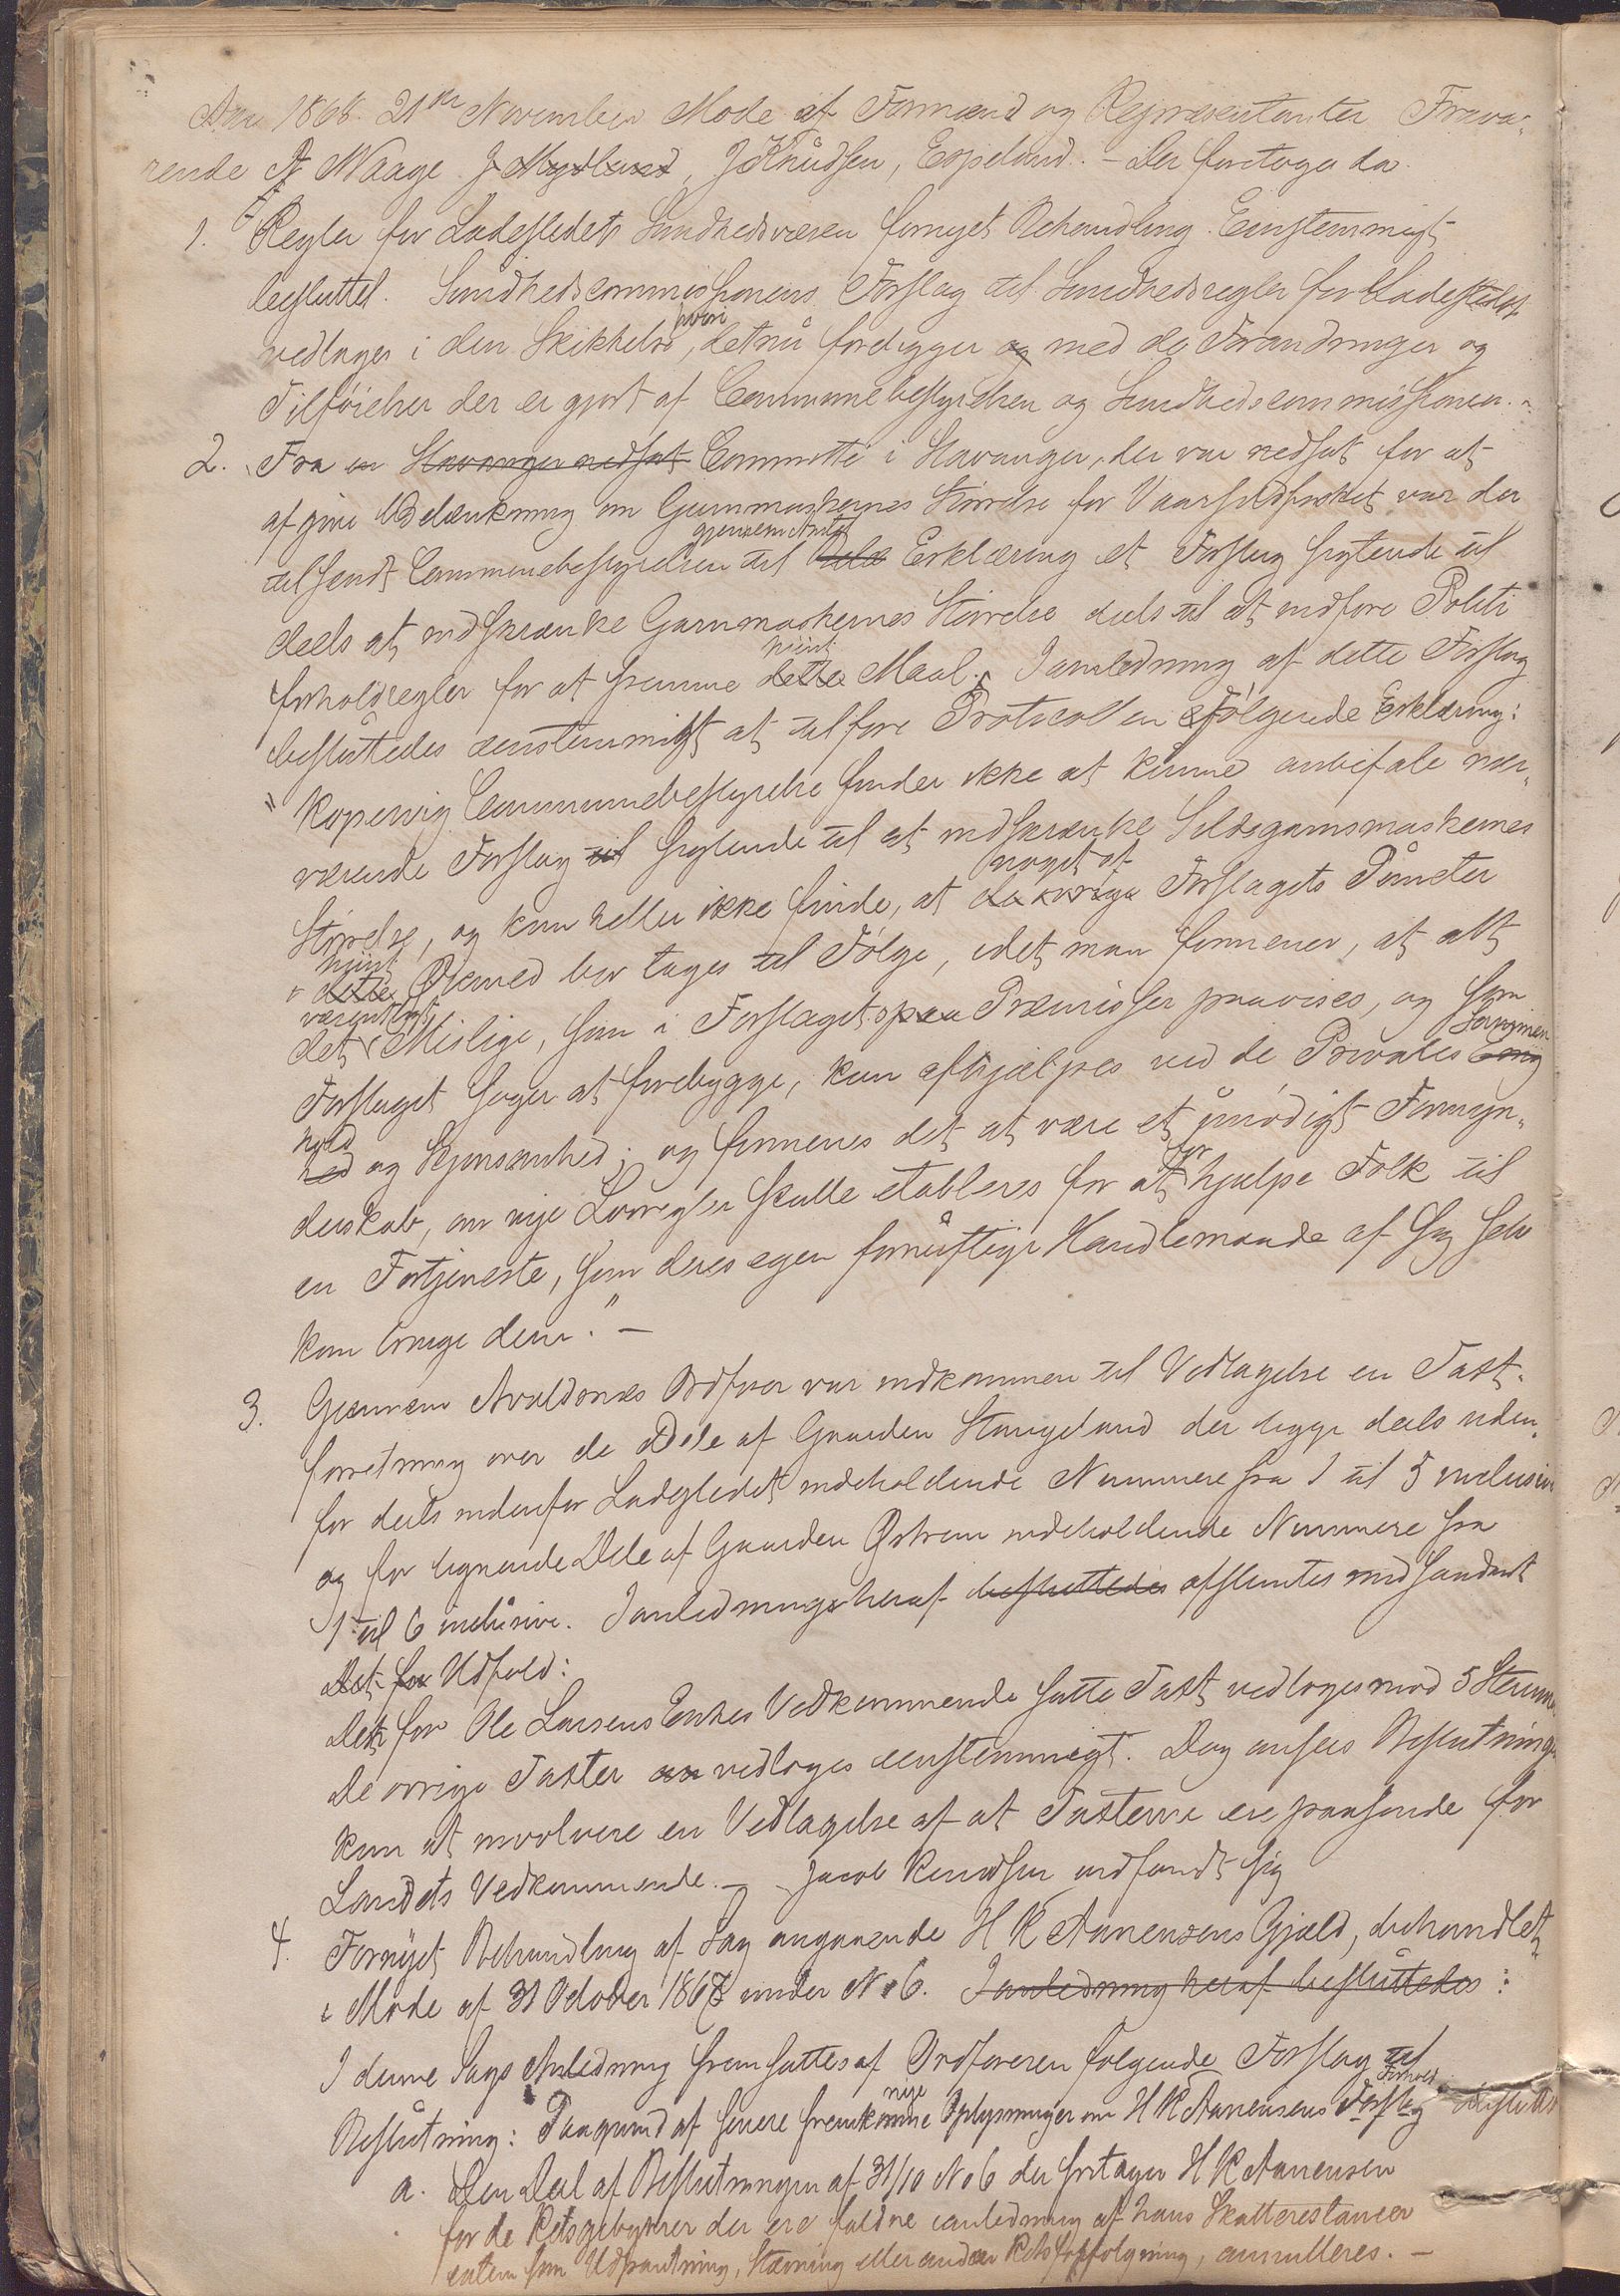 Aar 1868. 21de November Møde af Formænd og Repræsentanter Fravæ-
rende A Waage J Mydland, J Knudsen, Espeland. – Der foretoges da
1. Regler for Ladestedets Sundhedsvæsen fornyet Behandling. Eenstemmigt
besluttet. Sundhedscommissionens Forslag til Sundhedsregler for Ladestedet
vedtages i den Skikkelse, hvori det nu foreligger og med de Forandringer og
Tilføielser der er gjort af Communebestyrelsen og Sundhedscommissionen. –
2. Fra en Stavanger nedsat Committe i Stavanger, der var nedsat for at
afgive Betænkning om Garnmaskernes Størrelse for Vaarsildfisket var der
tilsendt Communebestyrelsen gjennem Amtet til Erklæring et Forslag sigtende til
deels at indskrænke Garnmaskernes Størrelse deels til at indføre Politi
forholdsregler for at fremme dette hiint Maal. I anledning af dette Forslag
besluttedes eenstemmigt at tilføre Protocollen følgende Erklæring:
"Kopervig Communebestyrelse finder ikke at kunne anbefale nær-
værende Forslag til sigtende til at indskrænke Sildegarnsmaskernes
Størrelse, og kan heller ikke finde, at de øvrige noget af Forslagets Puncter
i dette hiint Øiemed bør tages til Følge, idet man formener, at alt
det væsentligst Mislige, som i Forslagets Præmisser paavises, og som
Forslaget søger at forebygge, kan afhjælpes ved de Privates Enig Sammen
hed hold og Skjønsomhed; og formenes det at være et unødigt Formyn-
derskab, om nye Lovregler skulle etableres for at for hjælpe Folk til
en Fortjeneste, som deres egen fornuftige Handlemaade af sig selv
kan bringe dem." –
3. Gjennem Avaldsnes Ordfører var indkommen til Vedtagelse en Taxt-
forretning over de Dele af Gaarden Stangeland der ligge deels uden-
for deels indenfor Ladestedet indeholdende Nummere fra 1 til 5 inclusive
og for lignende Dele af Gaarden Østrem indeholdende Nummere fra
1 til 6 inclusive. I anledning heraf besluttedes afstemtes med saadant
Det for Udfald:
Det for Ole Larsens Enkes Vedkommende satte Taxt vedtoges mod 5 Stemmer
De øvrige Taxter vedtoges eenstemmigt. Dog ansees Beslutningen
kun at involvere en Vedtagelse af at Taxterne ere passende for
Landets Vedkommende. – Jacob Knudsen indfandt sig
4. Fornyet Behandling af Sag angaaende H K Aanensens Gjæld, behandlet
i Møde af 31 October 1868 under No 6. I anledning heraf besluttedes:
I denne Sags Anledning fremsattes af Ordføreren følgende Forslag til
Beslutning: Paagrund af senere fremkomne nye Oplysninger om H K Aanensens Forslag Forhold
a. Den Deel af Beslutningen af 31/10 No 6 der fritager H K Aanensen
for de Retsgebyhrer der ere faldne i anledning af hans Skatterestancer
enten som Udpantning, Stævning eller anden Retsforfølgning, annulleres. –